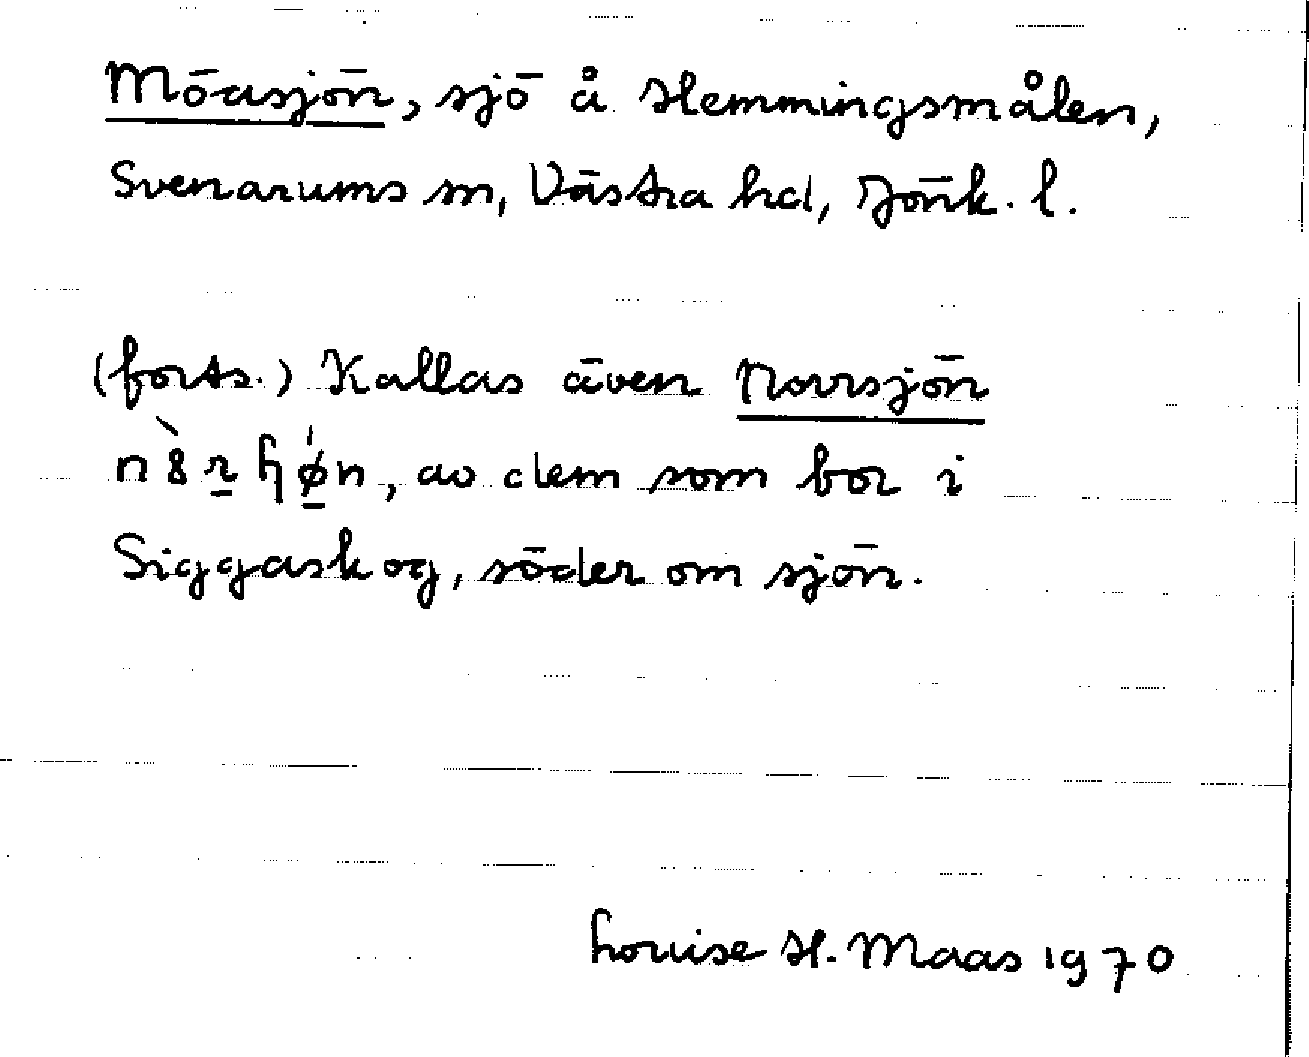 Möasjön, sjö å Hemmingsmålen,
Svenarums sn, Västra hd, Jönk. l.
(forts.) Kallas även Norrsjön
, av dem som bor i
Siggaskog, söder om sjön.
Louise H. Maas 1970